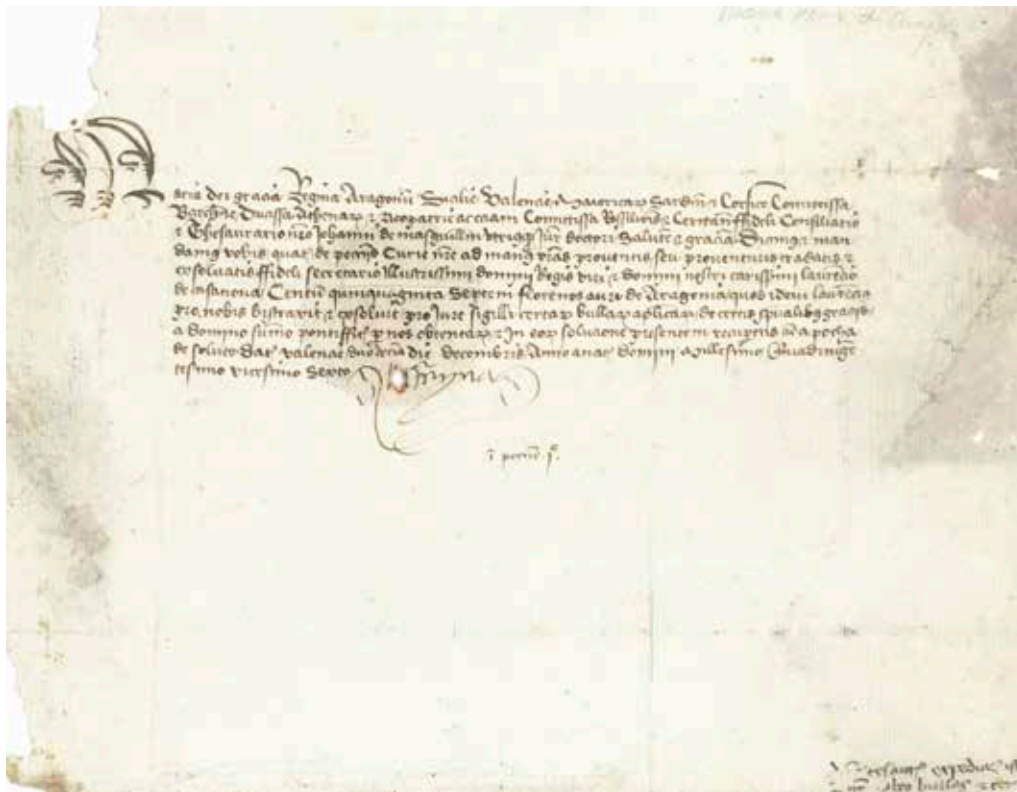 Maria dei gracia Regina Aragonum Sicilie Valencie Maioricarum Sardinie & Corsice Comitissa
Barchne Ducissa Athenarum & Neopatrie ac etiam Comitissa Rossilionis & Ceritanie fideli Consiliario
& Thesaurario nro Johanni de utriusque Jur doctori Salutem & graciam Dicimus & man
damus vobis quat de peccunia Curie nre ad manus vras proventis seu proventuris tradatis &
exsolvatis fideli secretario Illustrissimi domini Regis viri & domini nostri carissimi laurencio
de casanova Centum quinquaginta Septem florenos auri de Aragonia quos idem laurenci
pro nobis bistraxit & exsolvit pro Jure sigilli bullarum aplicarum de certis spualibus gracijs
a domino sumo pontiffice p nos obtentarum & In eor solucione presentem recipietis apocham
de soluto Dat valencie duodecima die decembris Anno a nat domini Millesimo Quadringe
tesimo vicesimo Sexto
In peccunie Iº
expedic
bullas